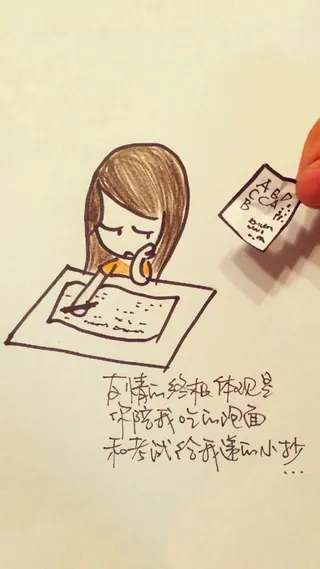 A B D
C C A
B
友情的终极体现是
你陪我吃的泡面
和考试给我递的小抄
...